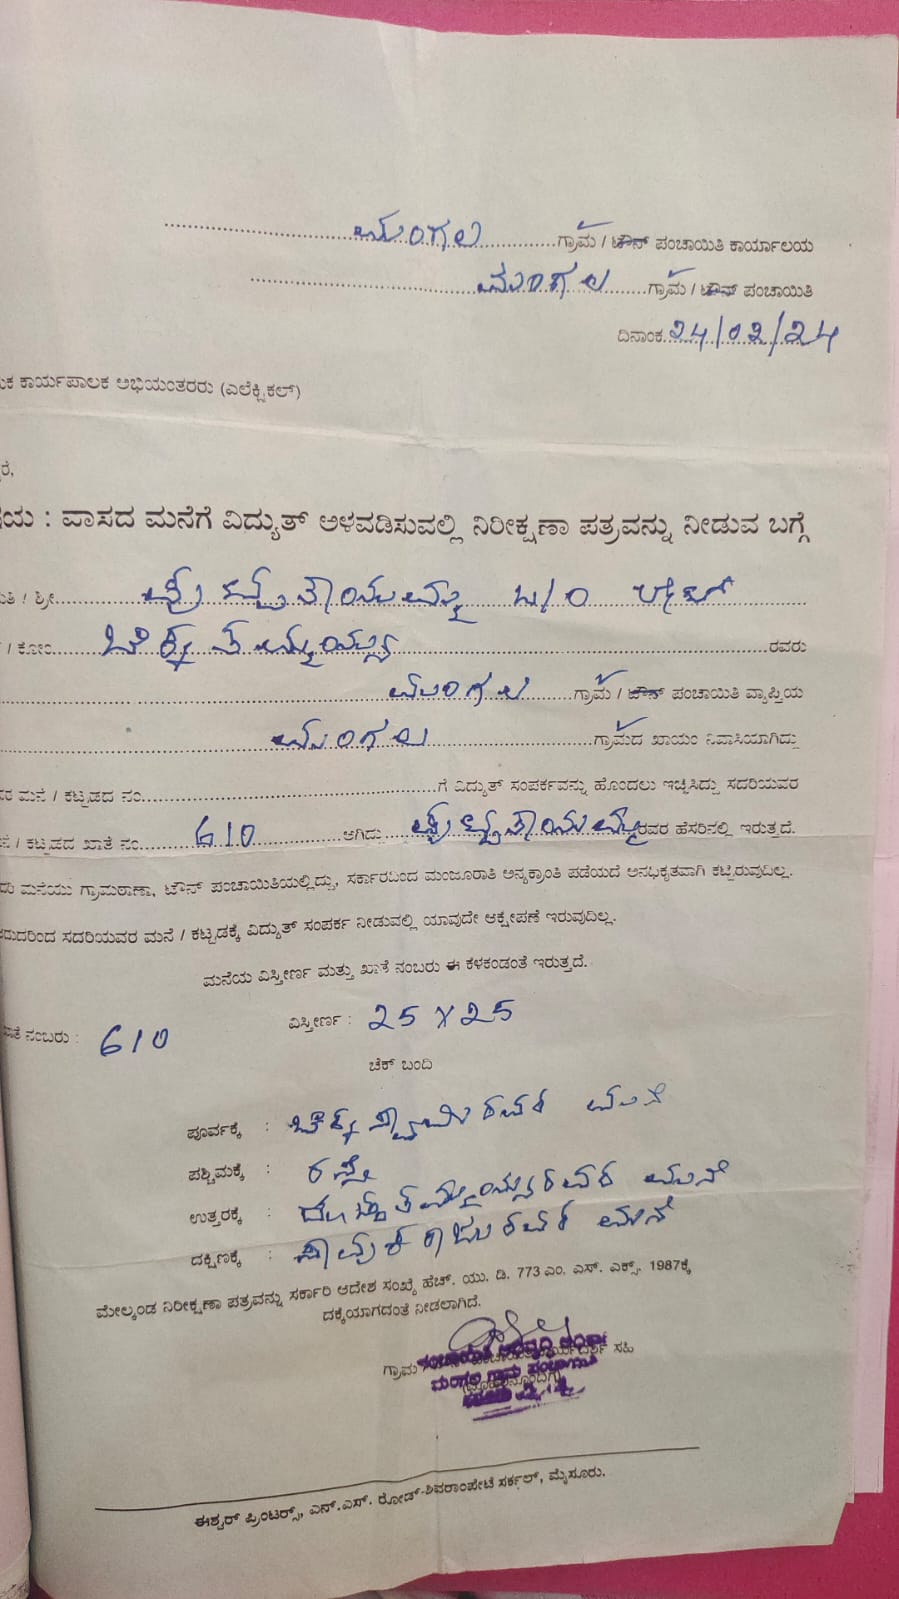 ಮಂಗಲ ಗ್ರಾಮ / ಟೌನ್ ಪಂಚಾಯಿತಿ ಕಾರ್ಯಾಲಯ
ಮಂಗಲ ಗ್ರಾಮ / ಟೌನ್ ಪಂಚಾಯಿತಿ
ದಿನಾಂಕ 24/02/24
ಕಾರ್ಯಪಾಲಕ ಅಭಿಯಂತರರು (ಎಲೆಕ್ಟ್ರಿಕಲ್)
: ವಾಸದ ಮನೆಗೆ ವಿದ್ಯುತ್ ಅಳವಡಿಸುವಲ್ಲಿ ನಿರೀಕ್ಷಣಾ ಪತ್ರವನ್ನು ನೀಡುವ ಬಗ್ಗೆ
/ ಶ್ರೀ
/ ಕೋಂ ರವರು
ಮಂಗಲ ಗ್ರಾಮ / ಟೌನ್ ಪಂಚಾಯಿತಿ ವ್ಯಾಪ್ತಿಯ
ಮಂಗಲ ಗ್ರಾಮದ ಖಾಯಂ ನಿವಾಸಿಯಾಗಿದ್ದು
ಮನೆ / ಕಟ್ಟಡದ ನಂ ಗೆ ವಿದ್ಯುತ್ ಸಂಪರ್ಕವನ್ನು ಹೊಂದಲು ಇಚ್ಛಿಸಿದ್ದು ಸದರಿಯವರ
/ ಕಟ್ಟಡದ ಖಾತೆ ನಂ 610 ಆಗಿದ್ದು ರವರ ಹೆಸರಿನಲ್ಲಿ ಇರುತ್ತದೆ.
ಮನೆಯು ಗ್ರಾಮಠಾಣಾ, ಟೌನ್ ಪಂಚಾಯಿತಿಯಲ್ಲಿದ್ದು, ಸರ್ಕಾರದಿಂದ ಮಂಜೂರಾತಿ ಅನ್ಯಕ್ರಾಂತಿ ಪಡೆಯದೆ ಅನಧಿಕೃತವಾಗಿ ಕಟ್ಟಿರುವುದಿಲ್ಲ.
ಸದರಿಯವರ ಮನೆ / ಕಟ್ಟಡಕ್ಕೆ ವಿದ್ಯುತ್ ಸಂಪರ್ಕ ನೀಡುವಲ್ಲಿ ಯಾವುದೇ ಆಕ್ಷೇಪಣೆ ಇರುವುದಿಲ್ಲ.
ಮನೆಯ ವಿಸ್ತೀರ್ಣ ಮತ್ತು ಖಾತೆ ನಂಬರು ಈ ಕೆಳಕಂಡಂತೆ ಇರುತ್ತದೆ.
ನಂಬರು : 610 ವಿಸ್ತೀರ್ಣ : 25 X 25
ಚೆಕ್ ಬಂದಿ
ಪೂರ್ವಕ್ಕೆ : ರವರ ಮನೆ
ಪಶ್ಚಿಮಕ್ಕೆ : ರಸ್ತೆ
ಉತ್ತರಕ್ಕೆ : ರವರ ಮನೆ
ದಕ್ಷಿಣಕ್ಕೆ : ರವರ ಮನೆ
ಮೇಲ್ಕಂಡ ನಿರೀಕ್ಷಣಾ ಪತ್ರವನ್ನು ಸರ್ಕಾರಿ ಆದೇಶ ಸಂಖ್ಯೆ ಹೆಚ್. ಯು. ಡಿ. 773 ಎಂ. ಎಸ್. ಎಕ್ಸ್. 1987ಕ್ಕೆ
ದಕ್ಕೆಯಾಗದಂತೆ ನೀಡಲಾಗಿದೆ.
ಗ್ರಾಮ ಸಹಿ
ಮಂಗಲ ಗ್ರಾಮ ಪಂಚಾಯಿತಿ
ಈಶ್ವರ್ ಪ್ರಿಂಟರ್ಸ್, ಎನ್.ಎಸ್. ರೋಡ್-ಶಿವರಾಂಪೇಟೆ ಸರ್ಕಲ್, ಮೈಸೂರು.